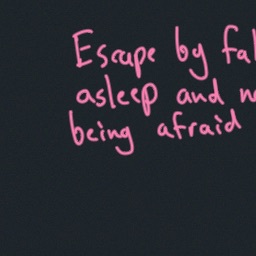 Escape by fal
asleep and n
being afraid